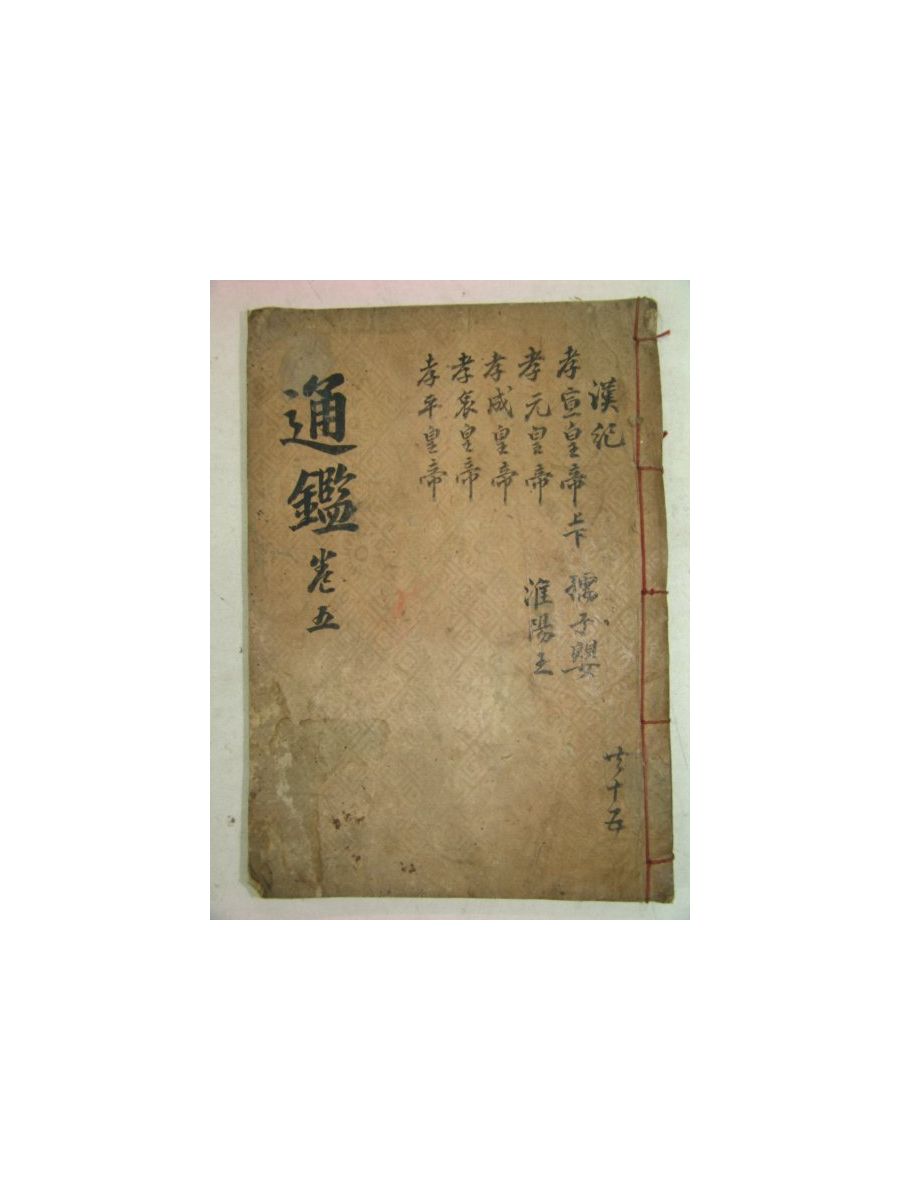 漢紀
孝宣皇帝 上下
孺子嬰
孝元皇帝
淮陽王
孝成皇帝
孝哀皇帝
孝平皇帝
共十五
通鑑 卷五